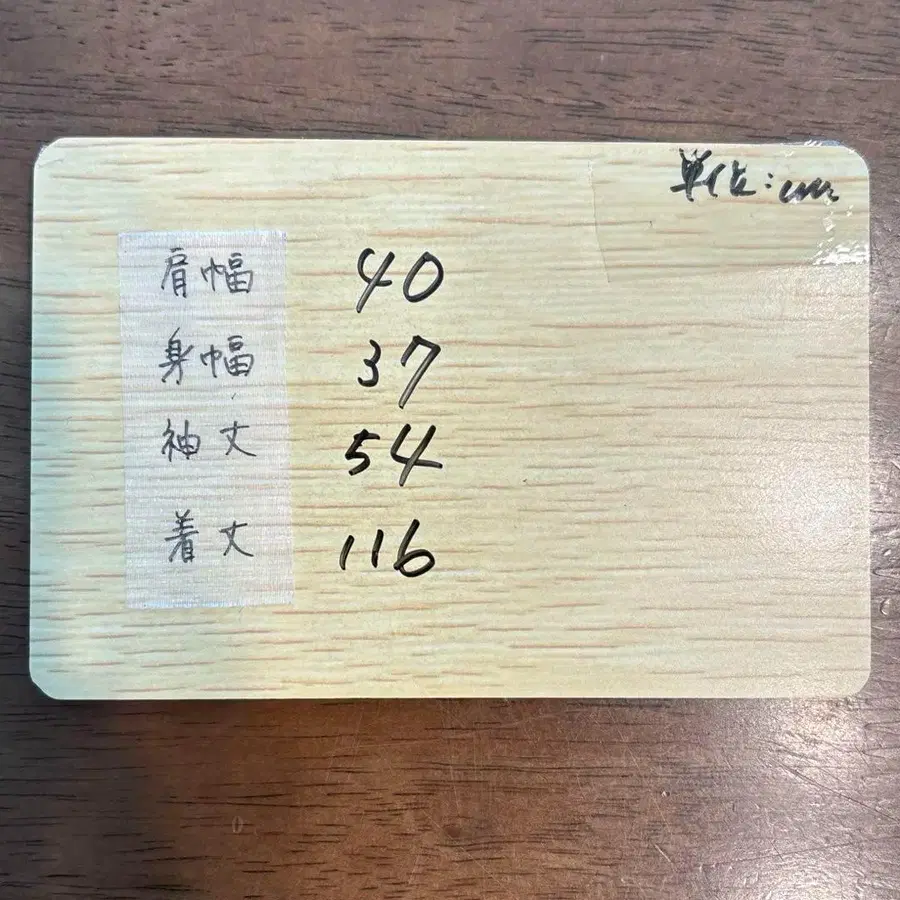 単位:cm
肩幅 40
身幅 37
袖丈 54
着丈 116